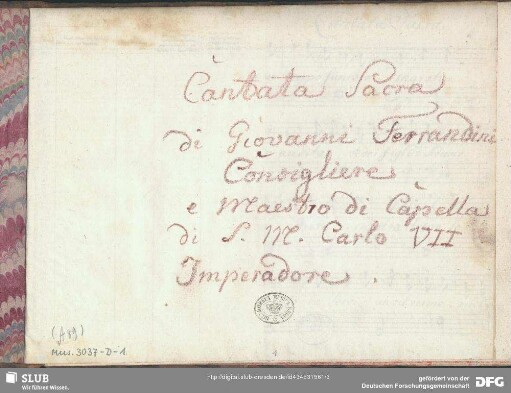 Cantata Sacra
di Giovanni Ferrandini
Consigliere
e Maestro di Capella
di S. M. Carlo VII
Imperadore.
Mus. 3037-D-1
SLUB
Wir führen Wissen.
gefördert von der
Deutschen Forschungsgemeinschaft
DFG